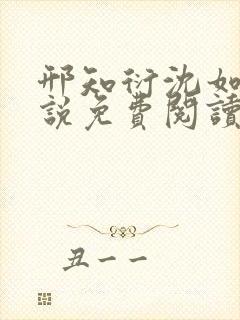 邢知衍沈如
說免費閱讀
丑一一